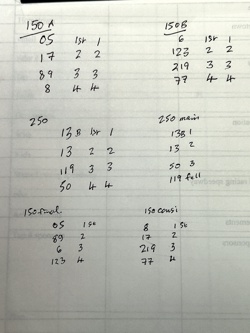 150 A
05 1st 1
17 2 2
89 3 3
8 4 4
150B
6 1st 1
123 2 2
219 3 3
77 4 4
250
13B 1st 1
13 2 2
119 3 3
50 4 4
250 main
13B 1
13 2
50 3
119 fell
150 final
05 1st
89 2
6 3
123 4
150 consi
8 1st
17 2
219 3
77 4